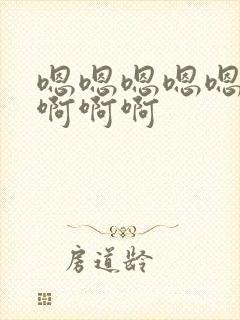 嗯嗯嗯嗯嗯
啊啊啊
房道龄